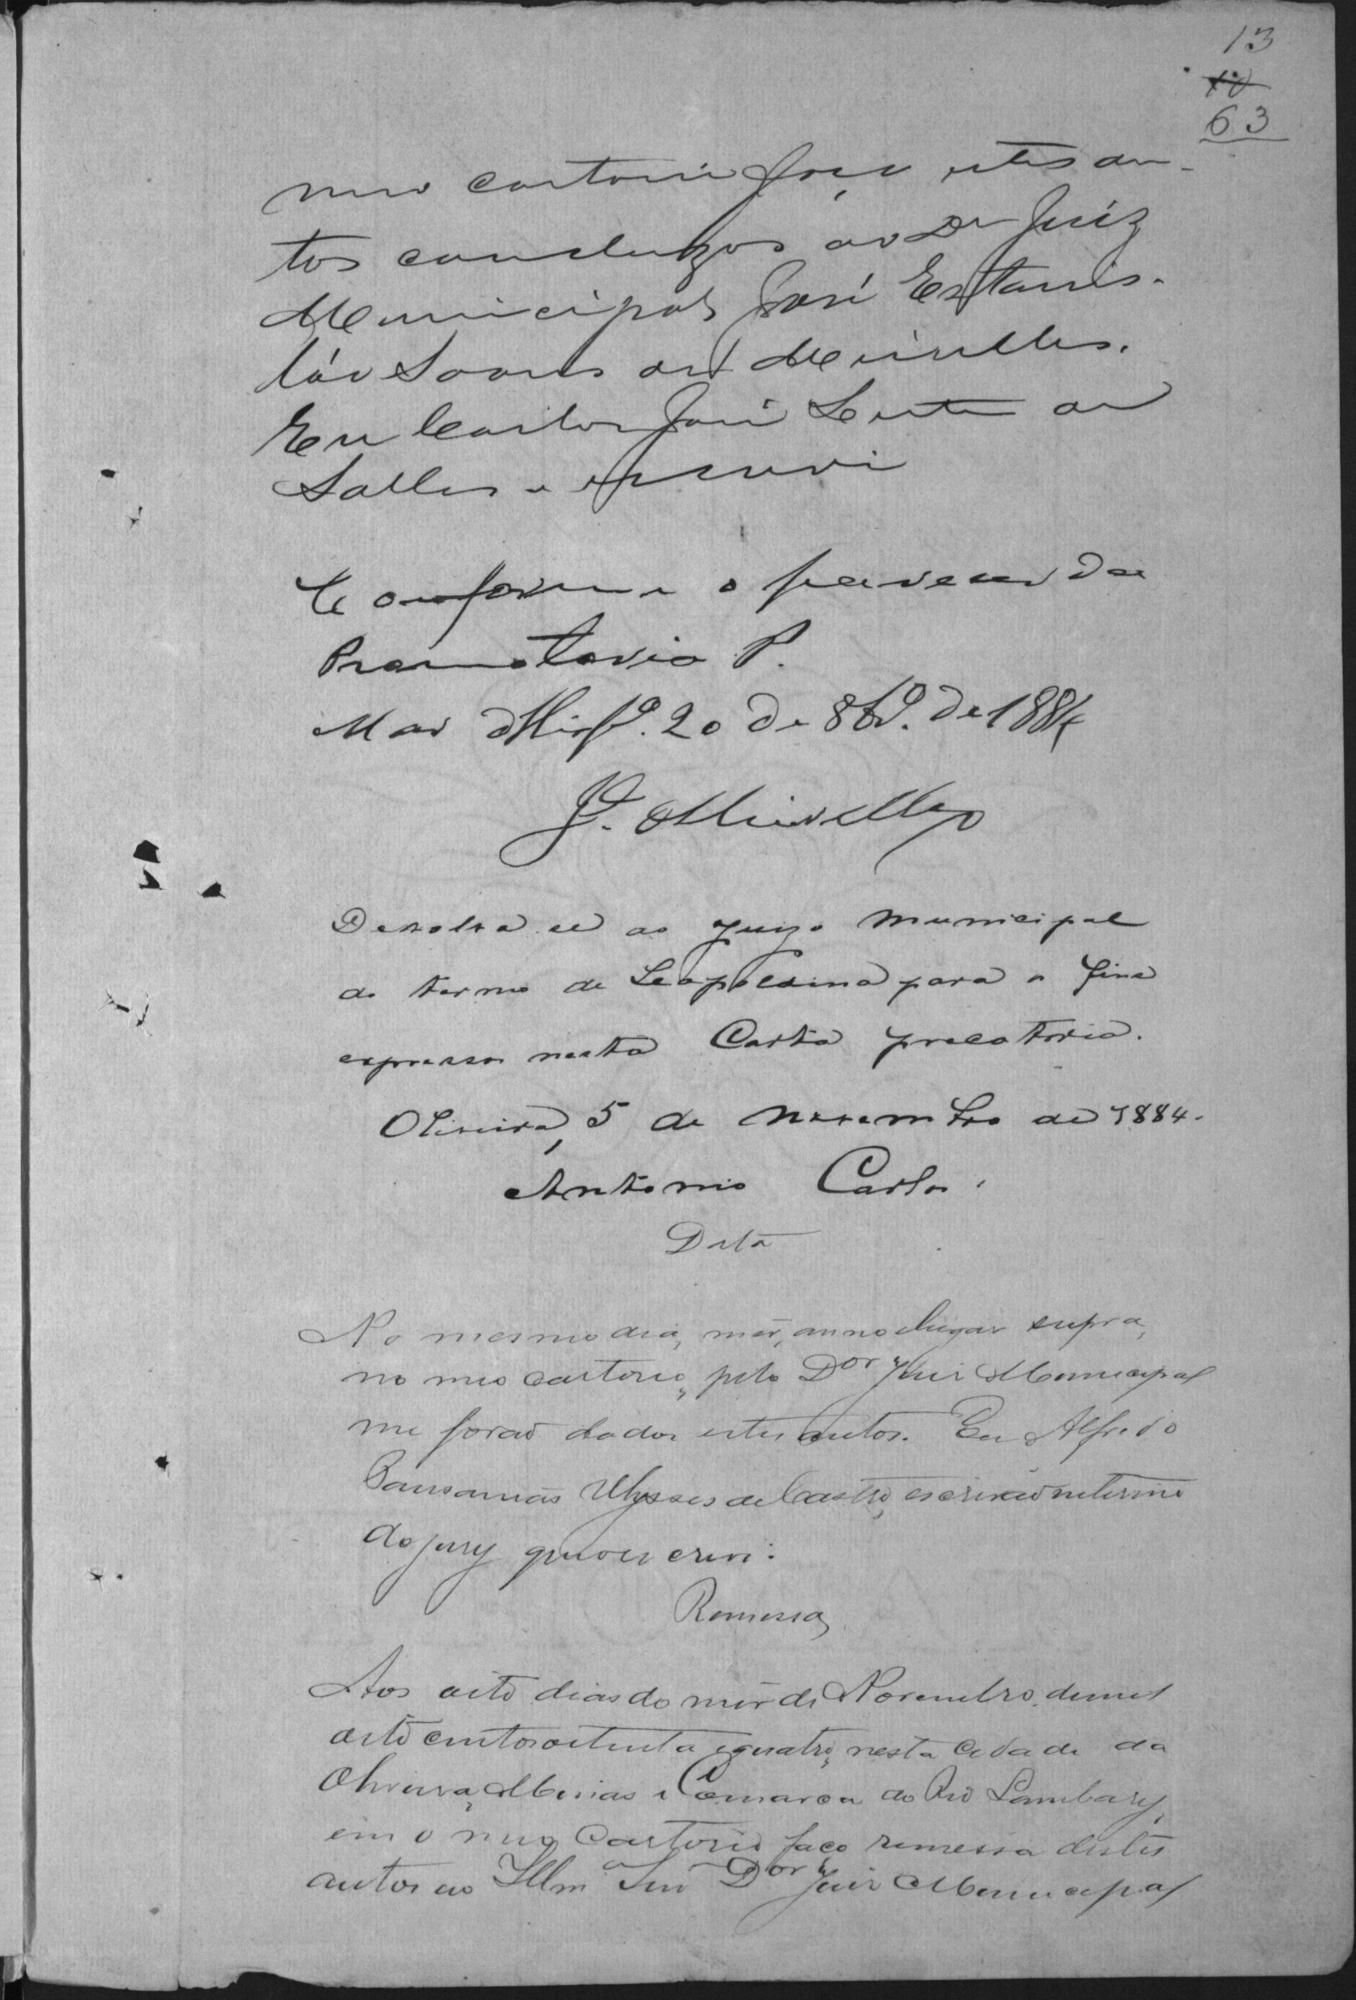 13
10
63
meu cartorio faço estes au-
tos concluzos ao Dr Juiz
Municipal José Estanis-
láo Soares de Meirelles.
Eu Carlos José Leite de
Salles o escrevi
Conforme o parecer da
Promotoria P.
Mar d'Hesp.ª 20 de 8bro. de 1884
J. Meirelles
Devolva se ao juizo municipal
do termo de Leopoldina para o fim
expresso nesta Carta precatoria.
Oliveira, 5 de novembro de 1884.
Antonio Carlos.
Data
No mesmo dia, mez, anno e lugar supra,
no meo cartorio, pelo Dor Juiz Municipal
me forão dados estes autos. Eu Alfredo
Pausanias Ulysses de Castro, escrivão interino
do jury que o escrevi:
Remessa
Aos oito dias do mez de Novembro de mil
oito centos oitenta e quatro, nesta cidade da
Oliveira, Minas e Comarca do Rio Lambary,
em o meo Cartorio faço remessa destes
autos ao Illmo Snr Dor Juiz Municipal